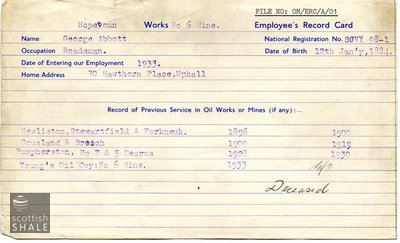 FILE NO: OM/ERC/A/01
Hopetoun Works No 6 Mine. Employee's Record Card
Name George Abbott National Registration No. SUVY 98-1
Occupation Roadsman. Date of Birth 12th Jan'y, 1884.
Date of Entering our Employment 1933.
Home Address 70 Hawthorn Place, Uphall
Record of Previous Service in Oil Works or Mines (if any):—
Newliston, Stewartfield & Forkneuk. 1896 1900
Cousland & Breich 1900 1919
Pumpherston, No 7 & 5 Dearns 1928 1930
Young's Oil Coy: No 6 Mine. 1933
Deceased
scottish
SHALE